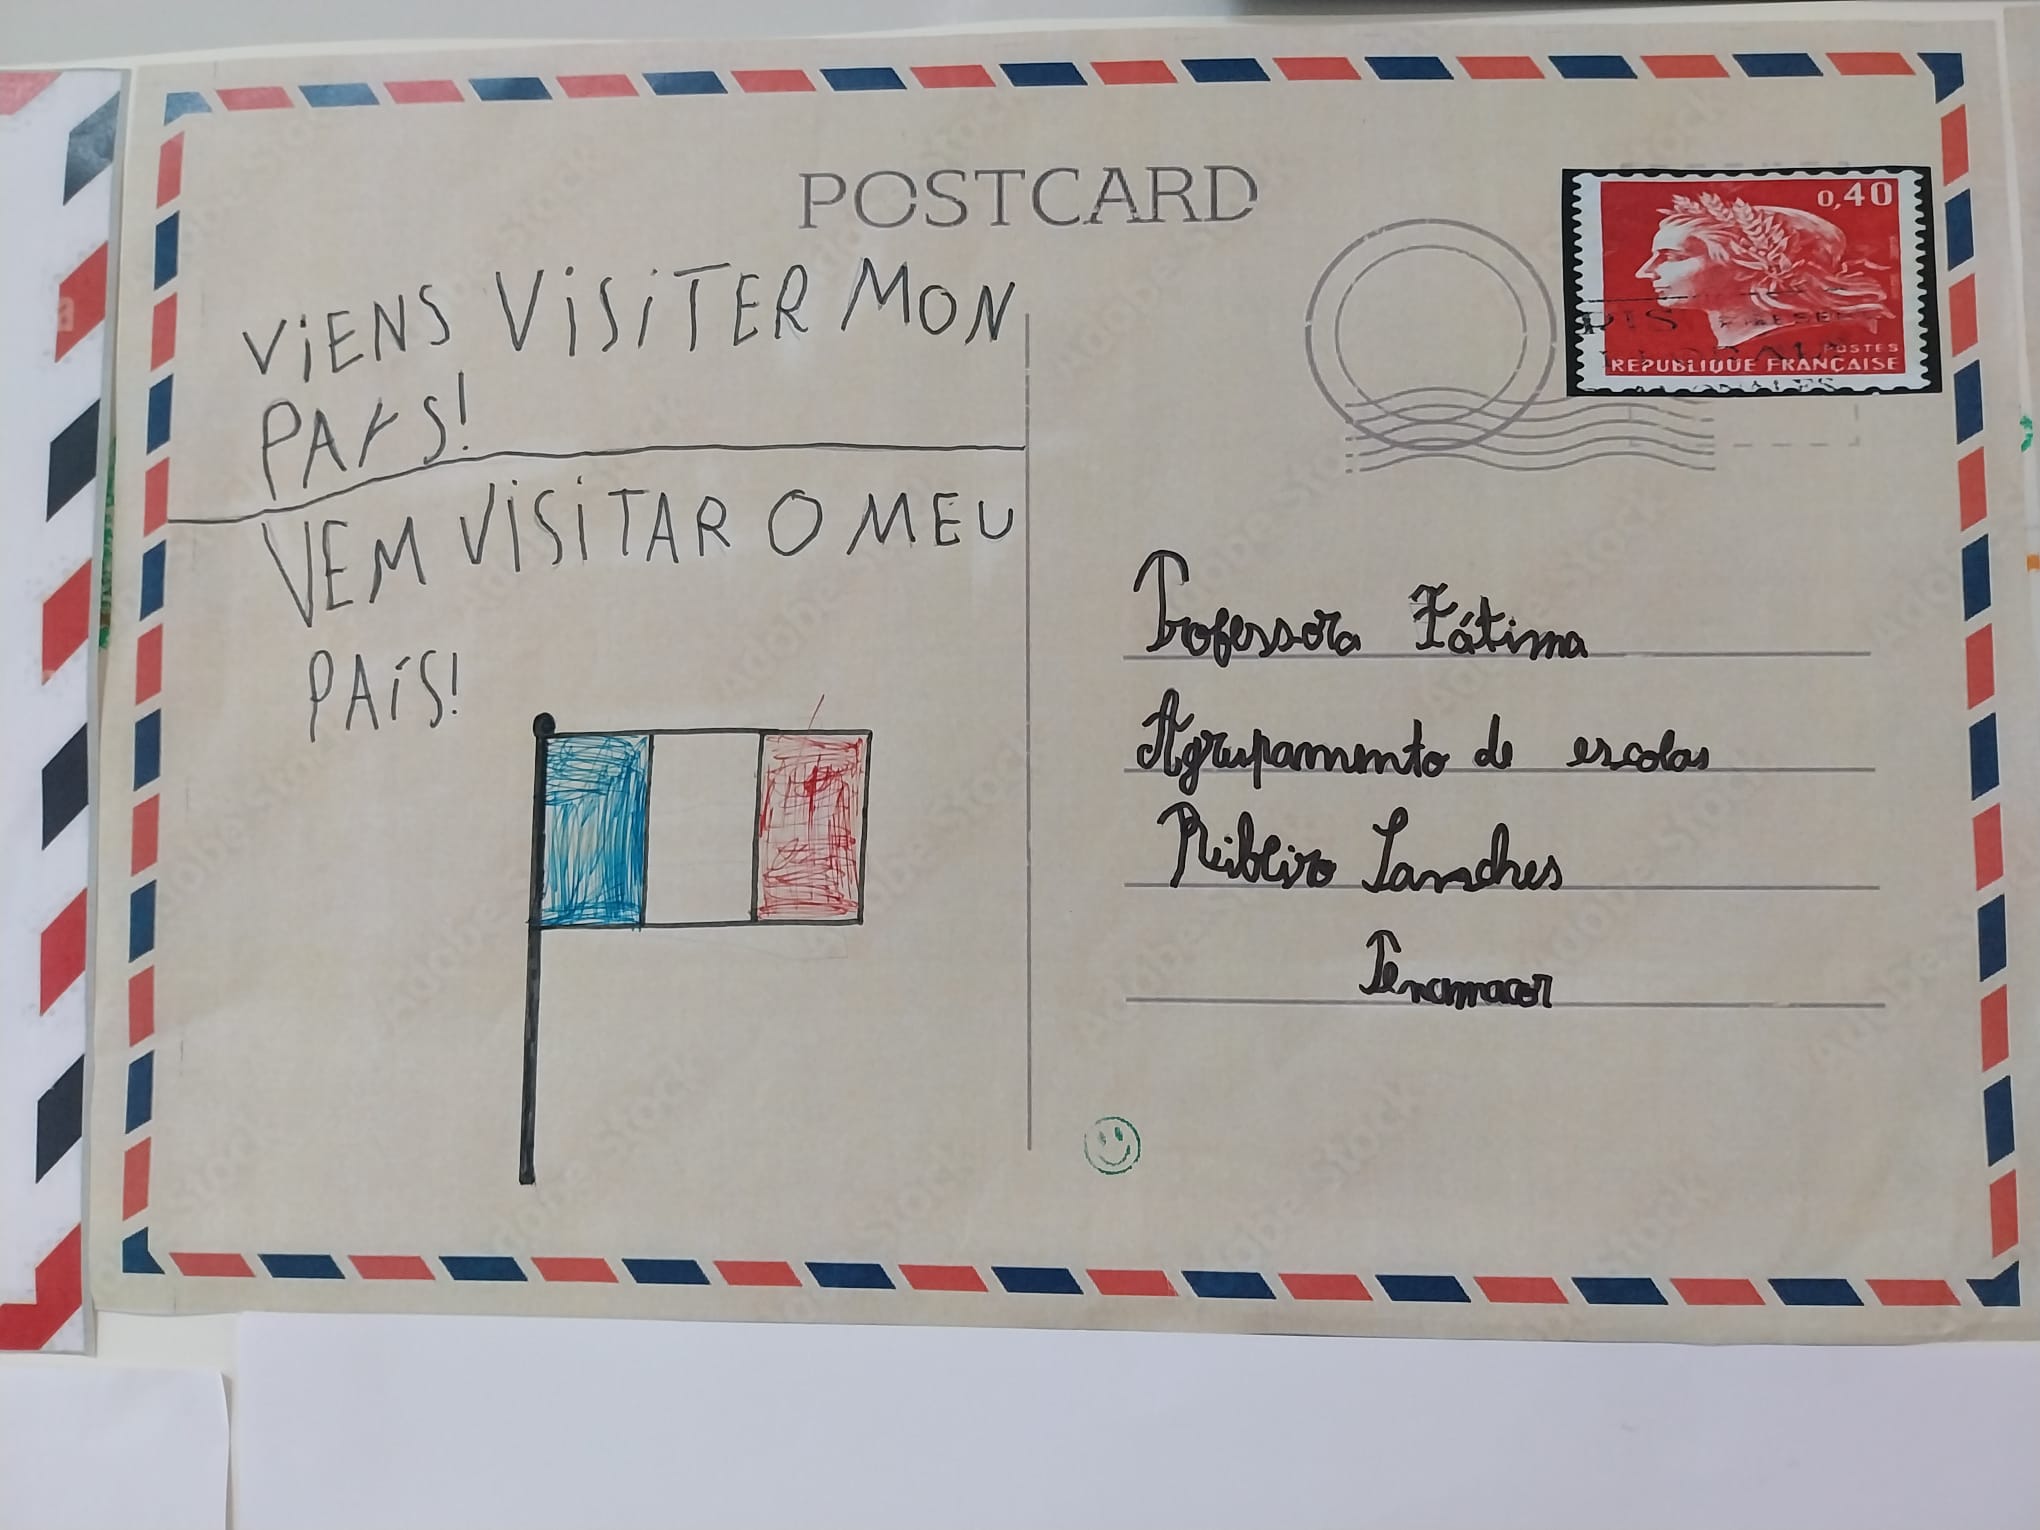 POSTCARD
VIENS VISITER MON
PAYS!
VEM VISITAR O MEU
PAÍS!
0,40
POSTES
REPUBLIQUE FRANÇAISE
Professora Fátima
Agrupamento de escolas
Ribeiro Sanches
Penamacor